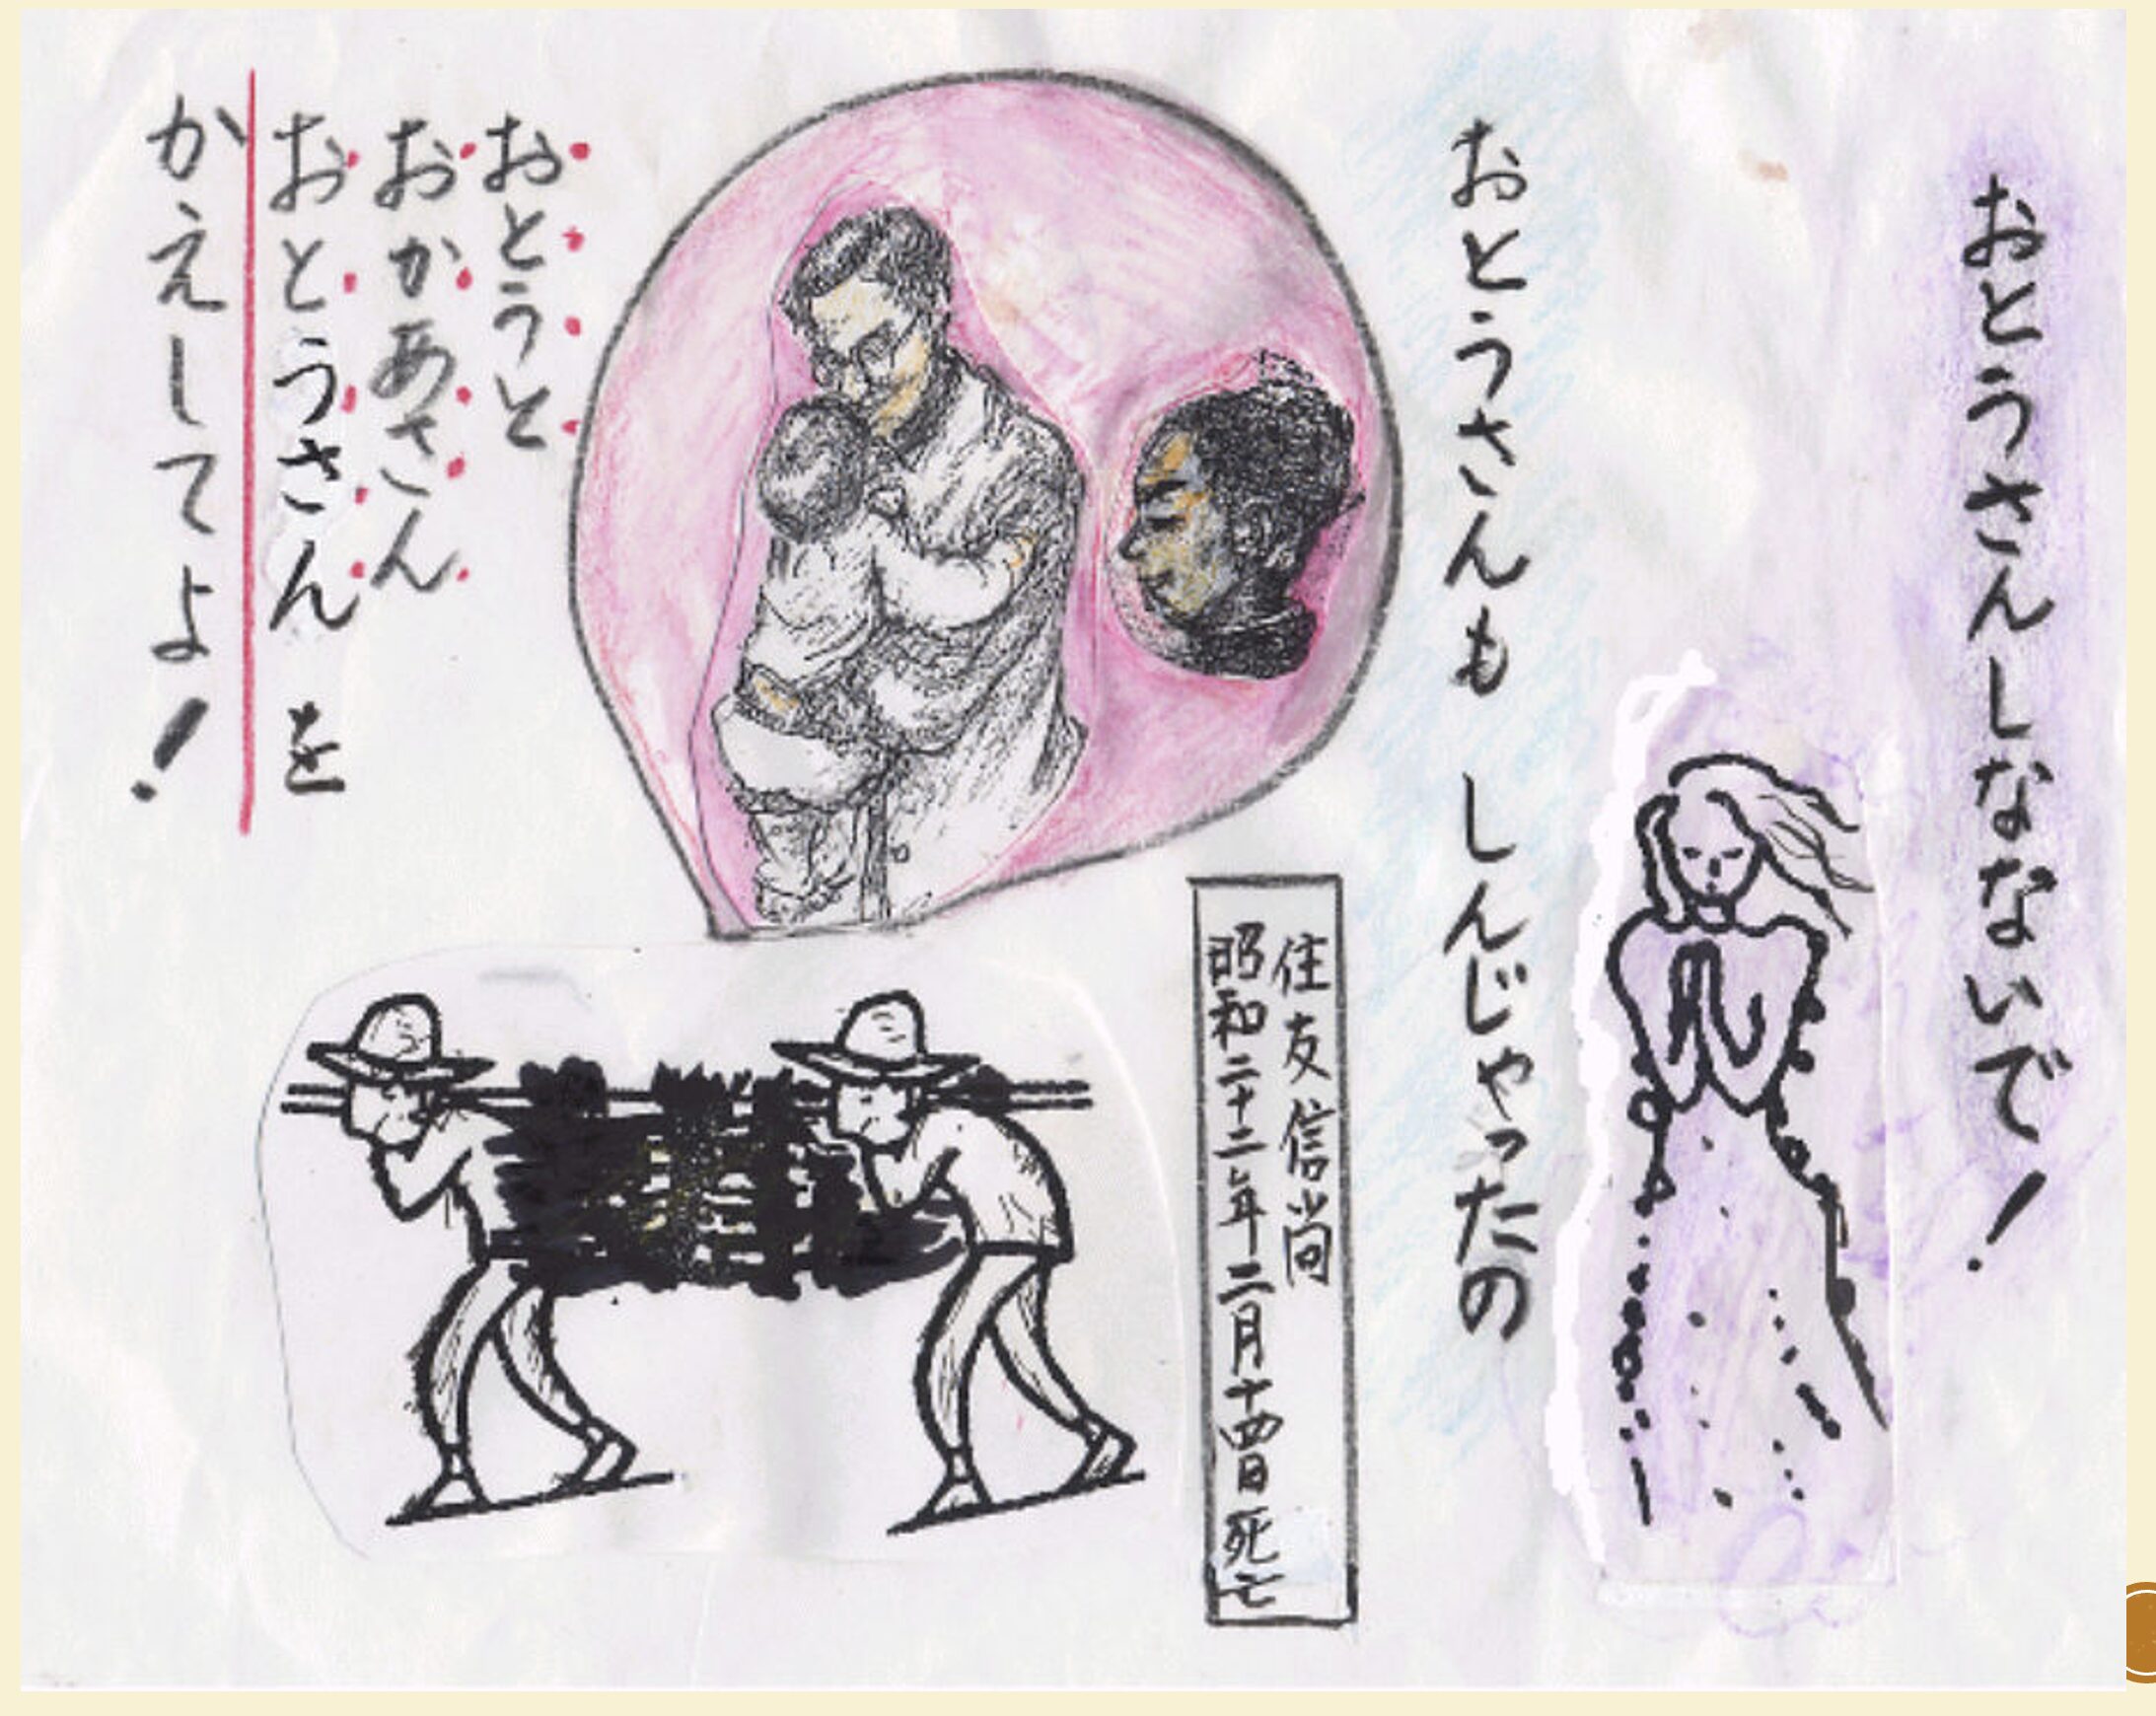 おとうさんしなないで！
おとうさんも しんじゃったの
住友信尚
昭和二十二年二月十四日死亡
おとうと
おかあさん
おとうさん を
かえしてよ！